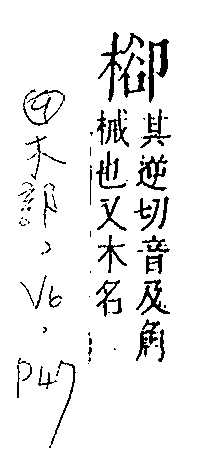 㭲
其逆切音及角
械也又木名
④木部、V6、P47